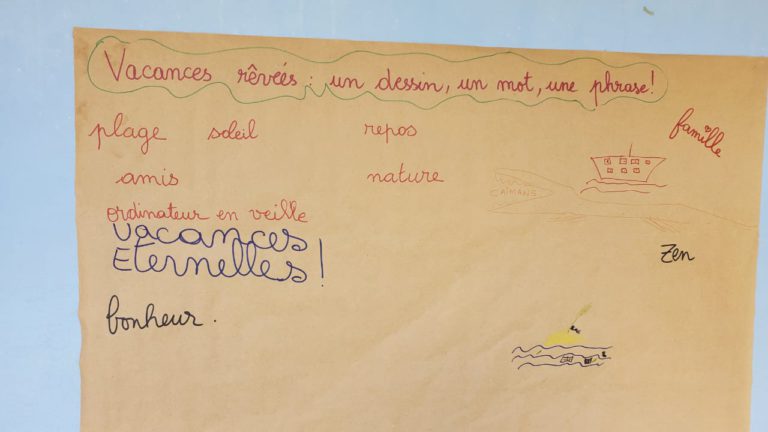 Vacances rêvées : un dessin, un mot, une phrase !
plage soleil repos famille
amis nature
CAÏMANS
ordinateur en veille
Vacances
Eternelles !
Zen
bonheur.